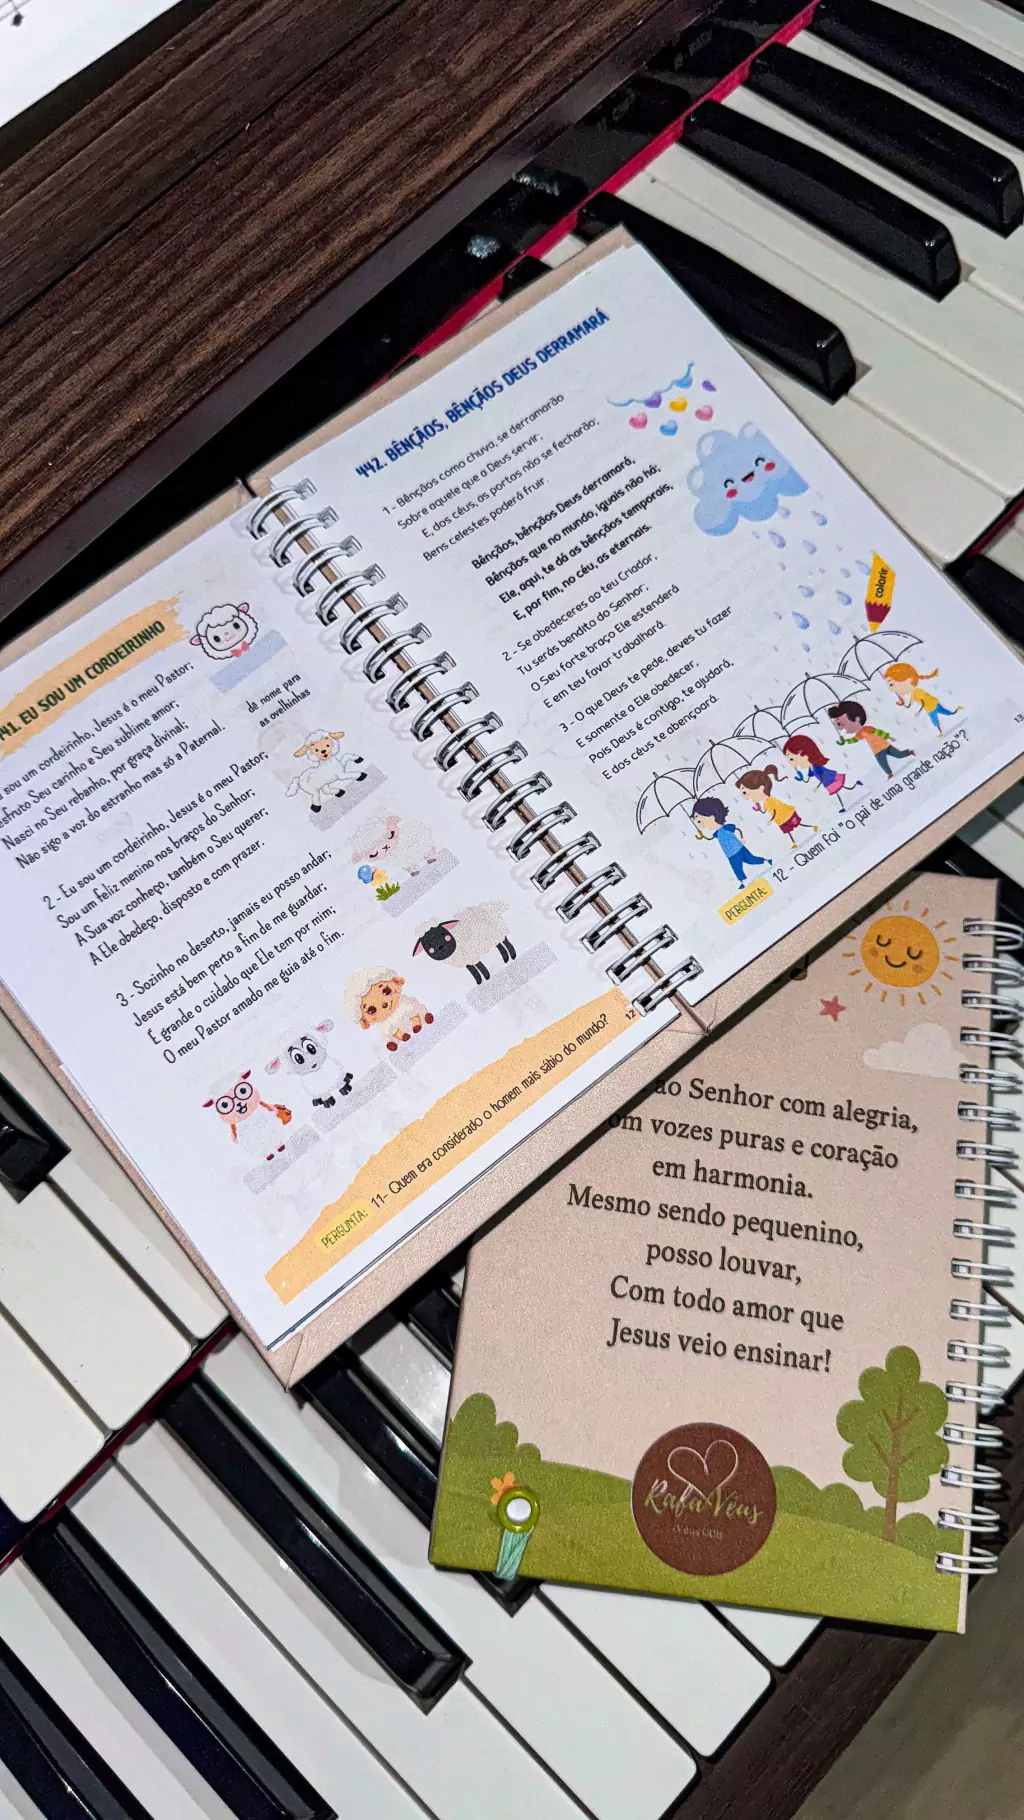 41. EU SOU UM CORDEIRINHO
sou um cordeirinho, Jesus é o meu Pastor;
Seu carinho e Seu sublime amor;
Nasci no Seu rebanho, por graça divinal;
Não sigo a voz do estranho mas só a Paternal.
de nome para
as ovelhinhas
2 - Eu sou um cordeirinho, Jesus é o meu Pastor;
Sou um feliz menino nos braços do Senhor;
A Sua voz conheço, também o Seu querer;
A Ele obedeço, disposto e com prazer.
3 - Sozinho no deserto, jamais eu posso andar;
Jesus está bem perto a fim de me guardar;
É grande o cuidado que Ele tem por mim;
O meu Pastor amado me guia até o fim.
PERGUNTA: 11- Quem era considerado o homem mais sábio do mundo?
12
442. BÊNÇÃOS, BÊNÇÃOS DEUS DERRAMARÁ
1 - Bênçãos como chuva, se derramarão
Sobre aquele que a Deus servir;
E, dos céus, as portas não se fecharão;
Bens celestes poderá fruir.
Bênçãos, bênçãos Deus derramará,
Bênçãos que no mundo, iguais não há;
Ele, aqui, te dá as bênçãos temporais,
E, por fim, no céu, as eternais.
2 - Se obedeceres ao teu Criador,
Tu serás bendito do Senhor;
O Seu forte braço Ele estenderá
E em teu favor trabalhará.
3 - O que Deus te pede, deves tu fazer
E somente a Ele obedecer,
Pois Deus é contigo, te ajudará,
E dos céus te abençoará.
colorir
PERGUNTA: 12 - Quem foi "o pai de uma grande nação"?
13
ao Senhor com alegria,
om vozes puras e coração
em harmonia.
Mesmo sendo pequenino,
posso louvar,
Com todo amor que
Jesus veio ensinar!
Rafa Véus
(Véus CCB)